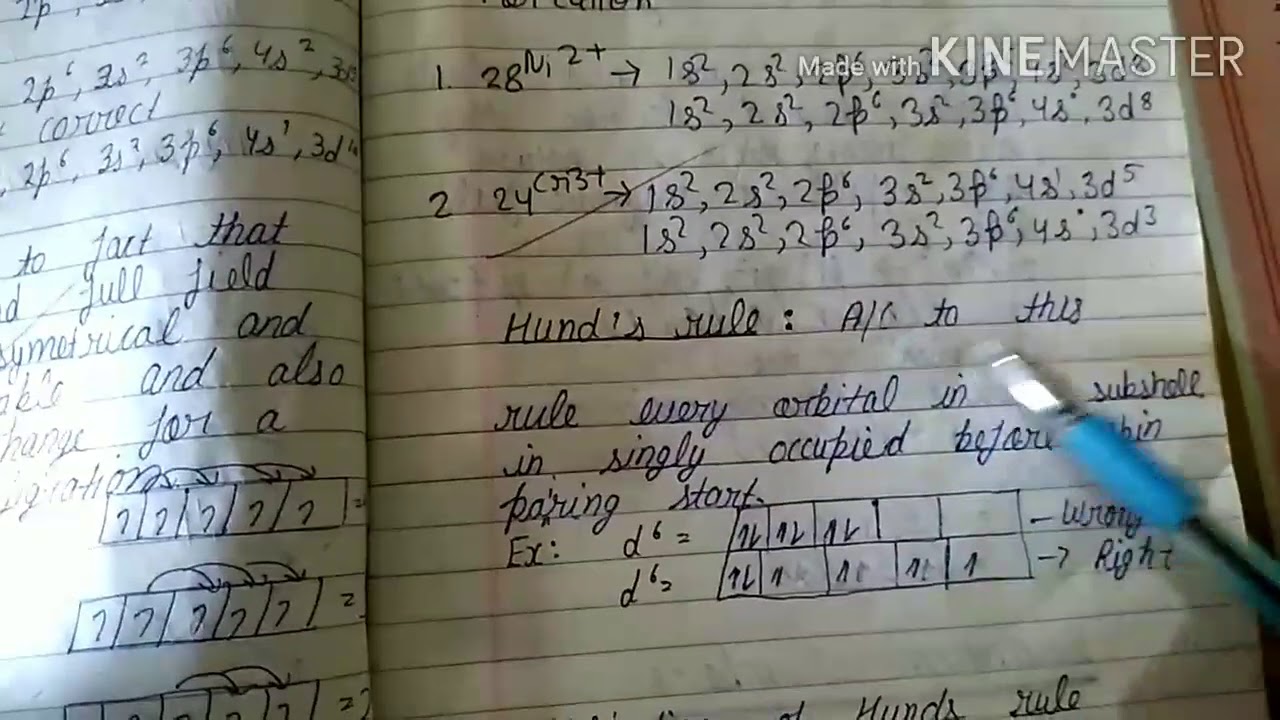 2p
2p⁶, 3s², 3p⁶, 4s², 3d
correct
2p⁶, 3s², 3p⁶, 4s¹, 3d
to fact that
full field
symetrical and
and also
hange for a
Made with KINEMASTER
1. 28 Ni 2+ → 1s², 2s², 2p⁶, 3s², 3p⁶, 4s, 3d
1s², 2s², 2p⁶, 3s², 3p⁶, 4s°, 3d8
2 24 Cr3+ → 1s², 2s², 2p⁶, 3s², 3p⁶, 4s¹, 3d5
1s², 2s², 2p⁶, 3s², 3p⁶, 4s°, 3d3
Hund's rule : A/C to this
rule every orbital in subshell
in singly occupied before
pairing start.
Ex: d⁶ = 1L 1L 1L - Wrong
d⁶= 1L 1 1 1 1 → Right
of Hunds rule